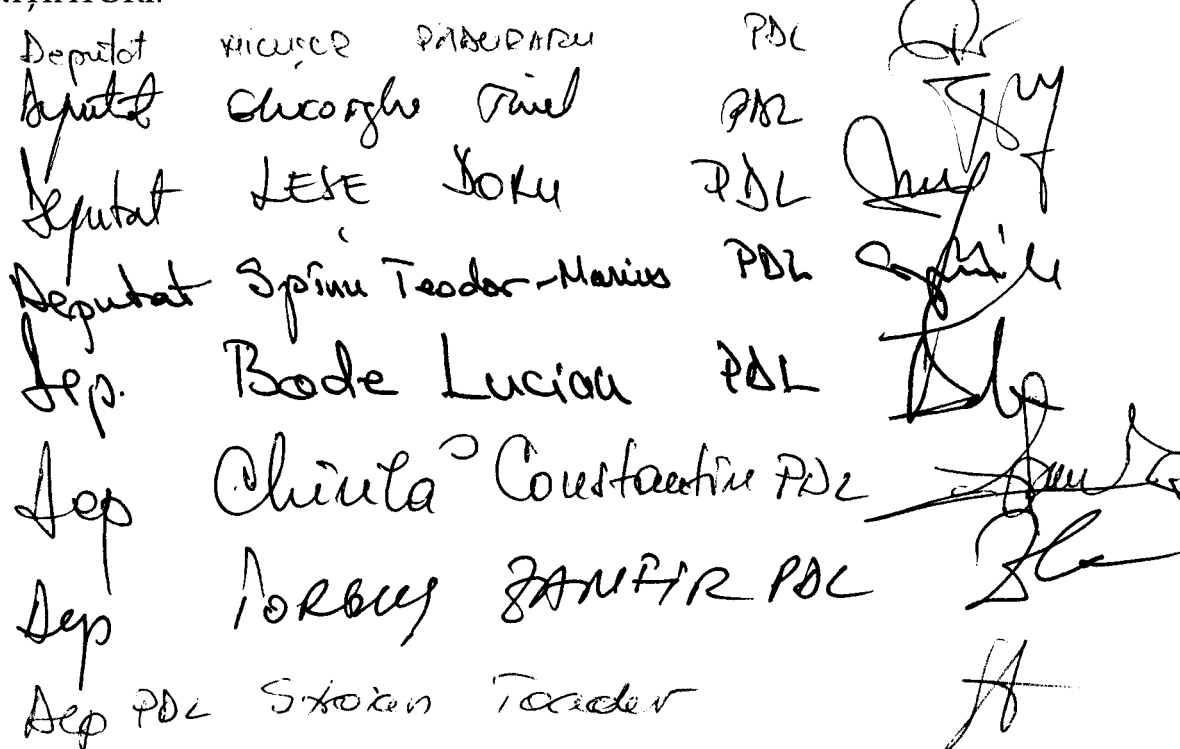 Deputat PDL
Deputat Gheorghe PDL
Deputat LEȘE DORU PDL
Deputat Spînu Teodor-Marius PDL
Dep. Bode Lucian PDL
Dep Chirilă Constantin PDL
Dep IORGUȘ ZAMFIR PDL
Dep PDL Stoian Toader